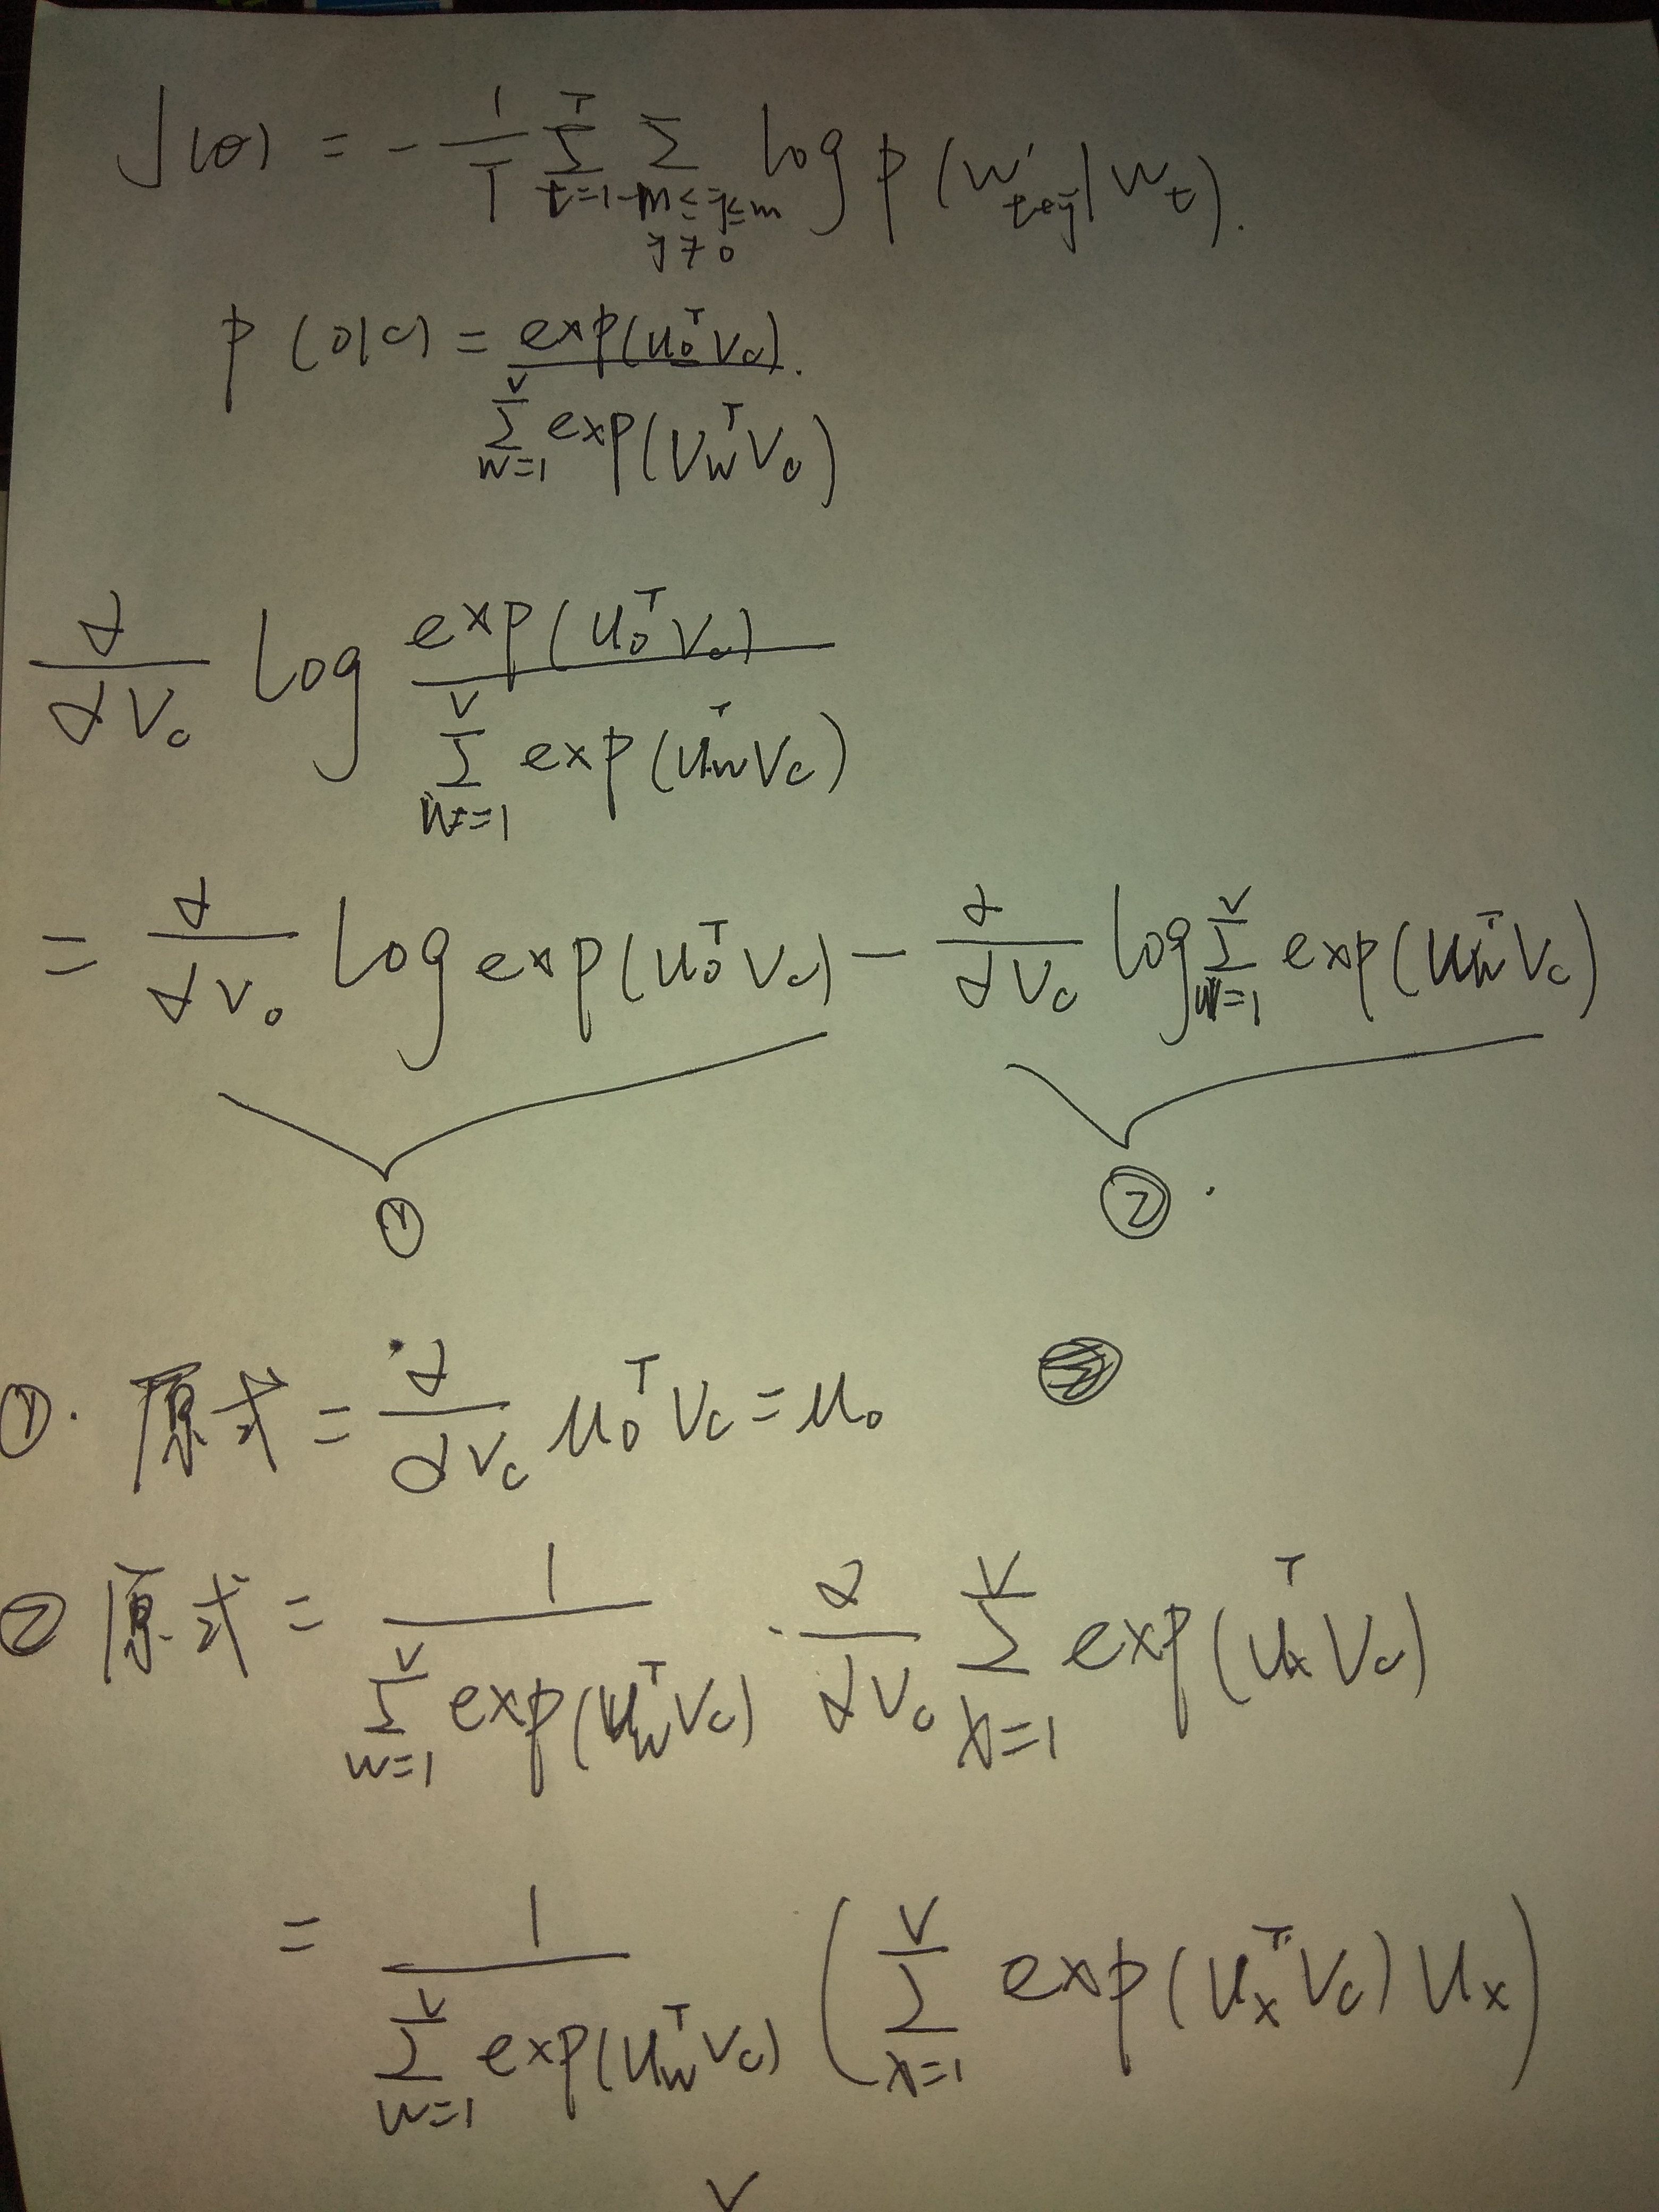 J(θ) = - 1/T Σ_{t=1}^{T} Σ_{-m≤j≤m, j≠0} log p(w'_{t+j} | w_t).
p(o|c) = exp(u_o^T v_c) / Σ_{w=1}^{V} exp(U_w^T V_c)
∂/∂V_c log exp(u_o^T V_c) / Σ_{w=1}^{V} exp(u_w^T V_c)
= ∂/∂V_c log exp(u_o^T V_c) - ∂/∂V_c log Σ_{w=1}^{V} exp(u_w^T V_c)
① ② .
①. 原式 = ∂/∂V_c u_o^T V_c = u_o
② 原式 = 1 / Σ_{w=1}^{V} exp(u_w^T V_c) · ∂/∂V_c Σ_{x=1}^{V} exp(u_x^T V_c)
= 1 / Σ_{w=1}^{V} exp(u_w^T V_c) ( Σ_{x=1}^{V} exp(u_x^T V_c) u_x )
V